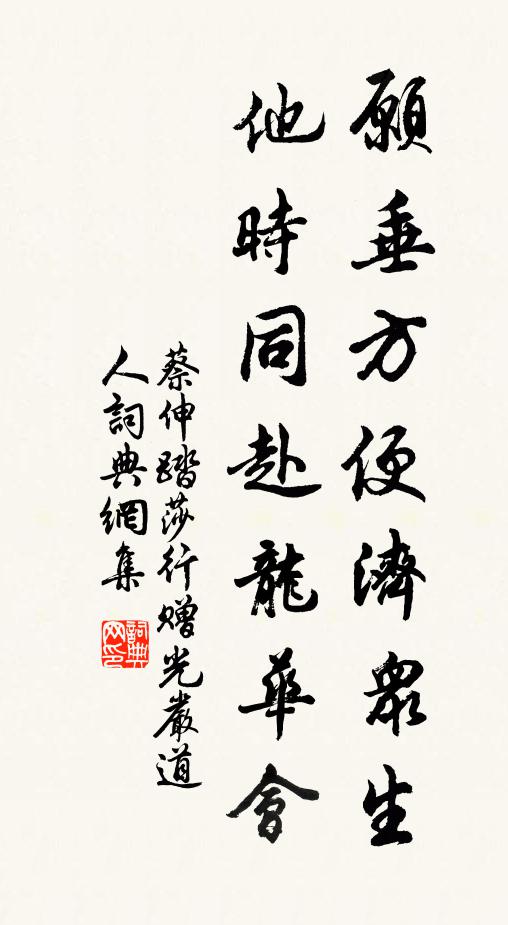 願垂方便濟衆生
他時同赴龍華會
蔡伸踏莎行贈光嚴道
人詞典網集
詞典
网印